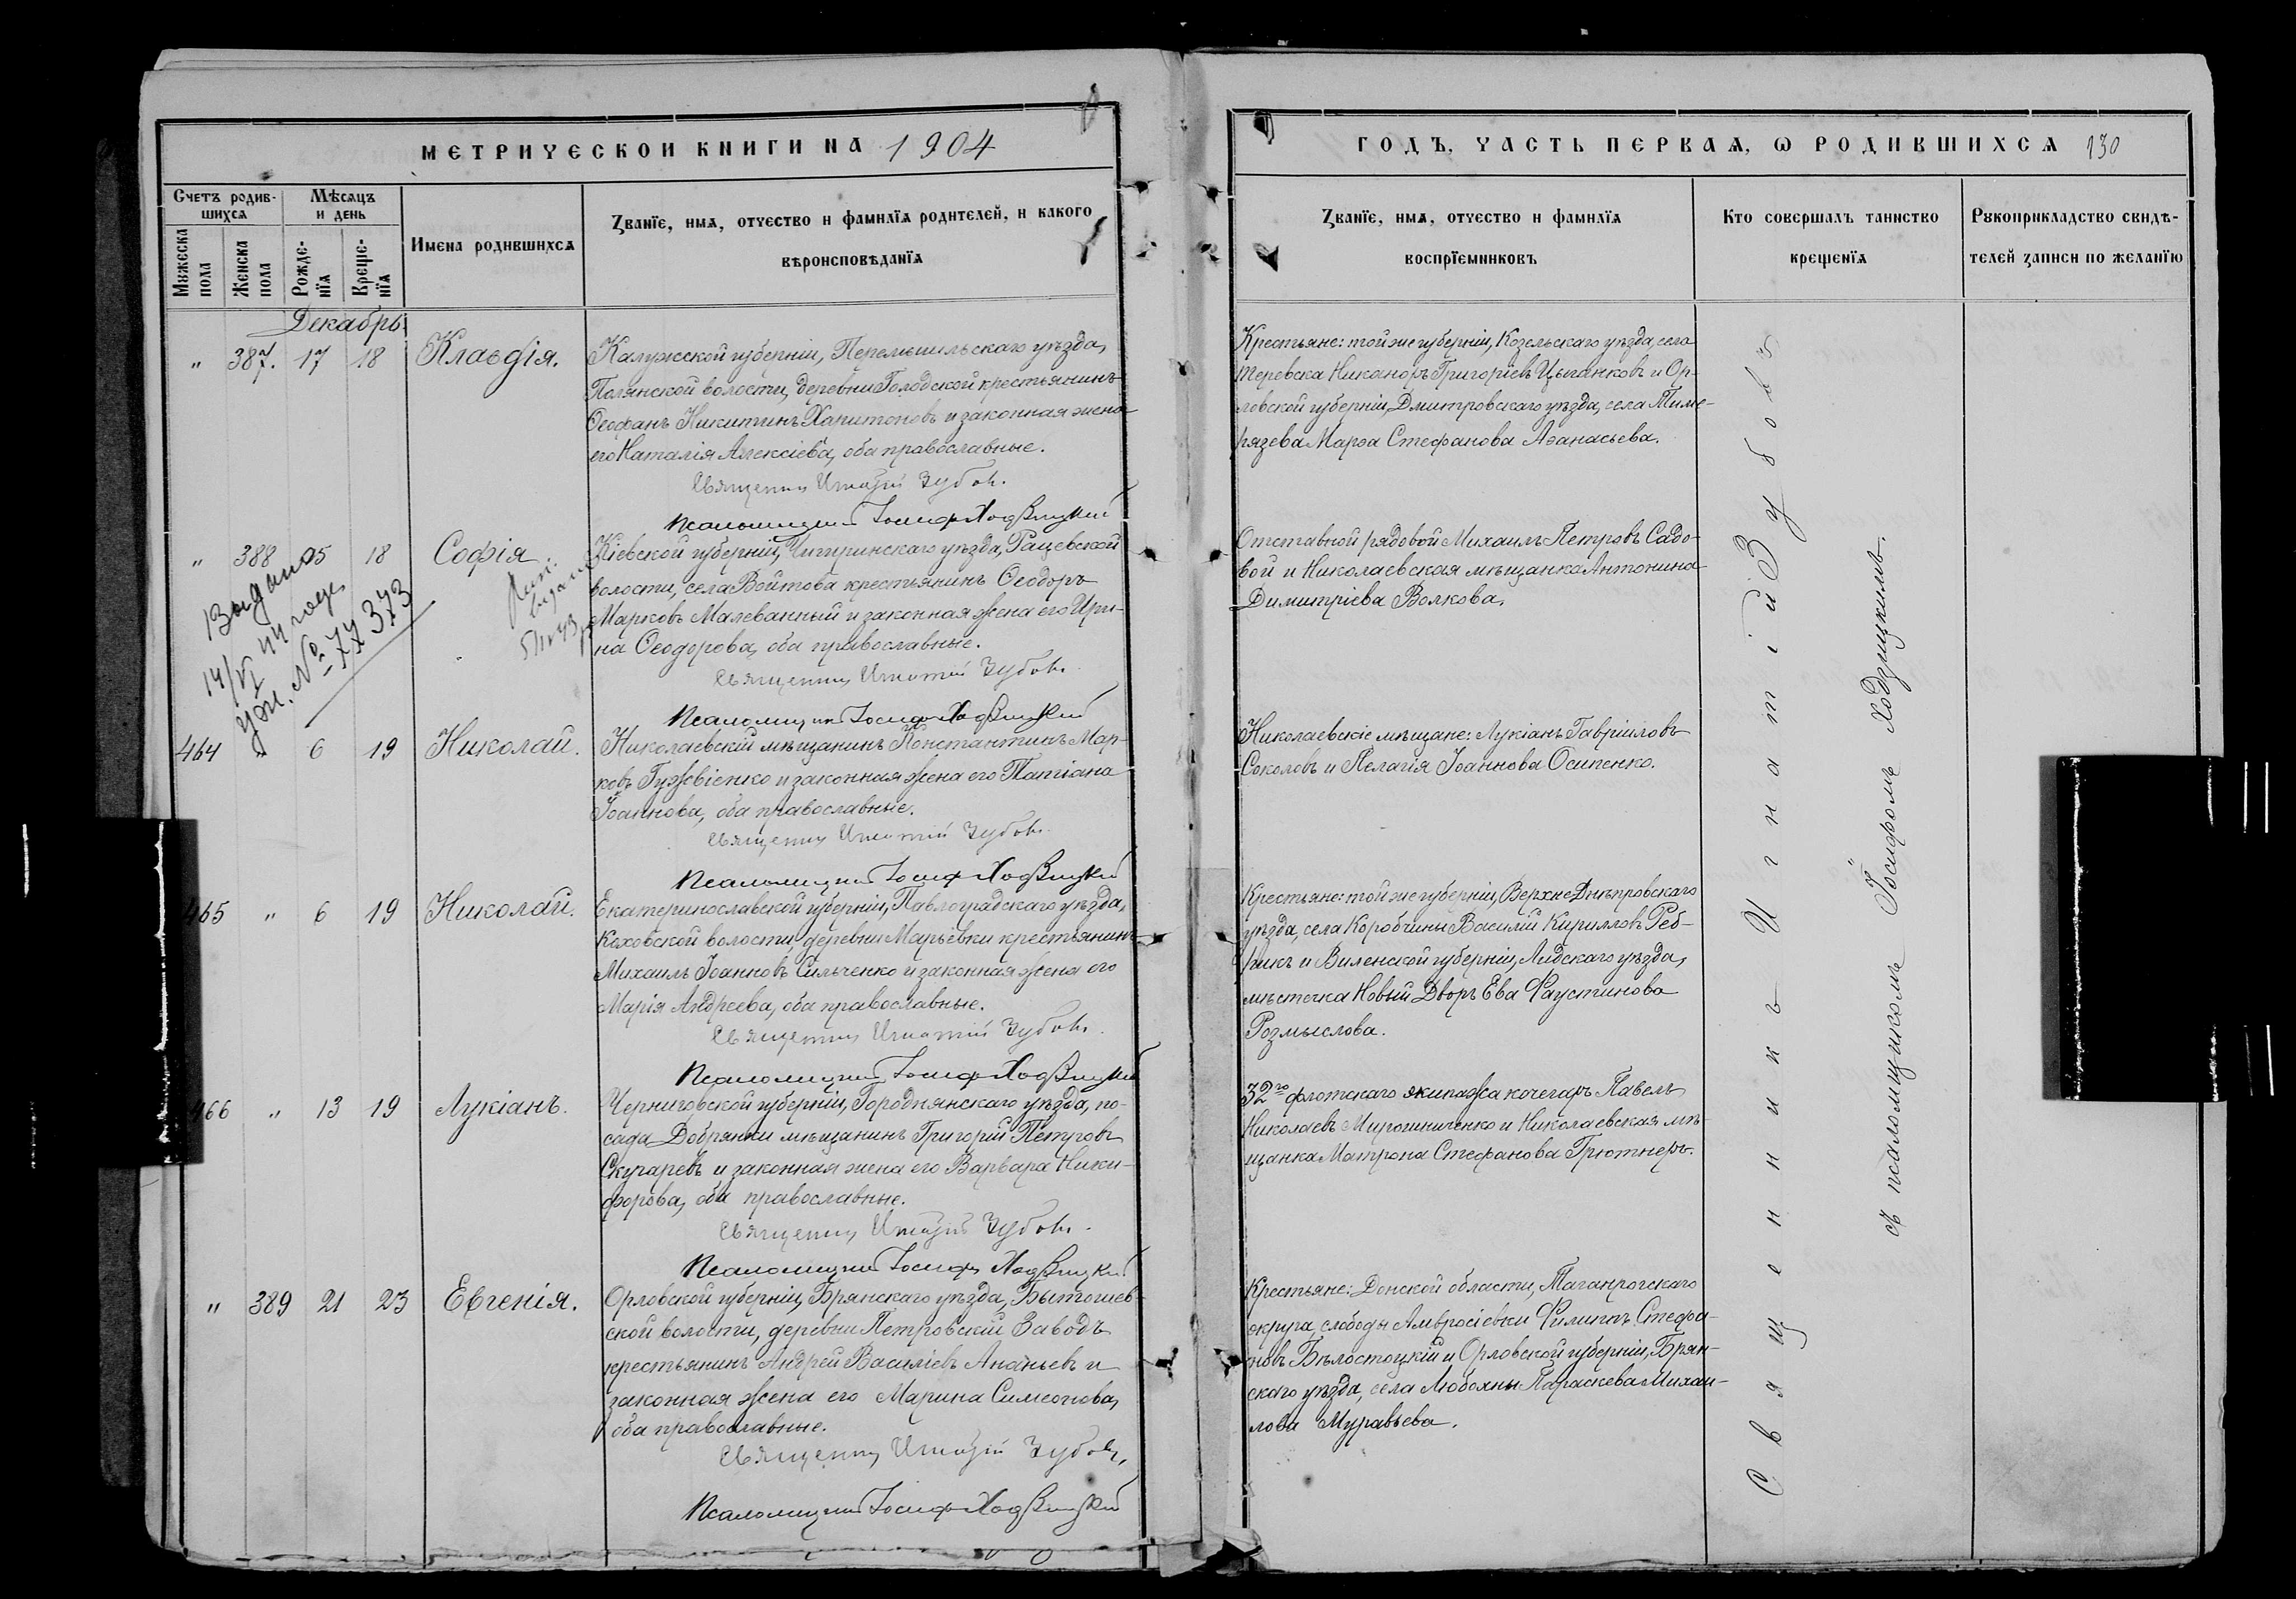 МЕТРИЧЕСКОЙ КНИГИ НА 1904
Счетъ родив-
шихся
Мѣсяцъ
и день
Мужеска
пола
Женска
пола
Рожде-
нїя
Креще-
нїя
Имена родившихся
Званїе, имя, отчество и фамилїя родителей, и какого
вѣроисповѣданїя
Декабрь
" 387. 17 18 Клавдія.
Калужской губерніи, Перемышльскаго уѣзда,
Полянской волости, деревни Голодской крестьянинъ
Ѳеофанъ Никитинъ Харитоновъ и законная жена
его Наталія Алексіева, оба православные.
Священникъ Игнатій Зубовъ.
Псаломщикъ Іосифъ Ходзицкій
" 388 15 18 София.
Кіевской губерніи, Чигиринскаго уѣзда, Рацевской
волости, села Войтова крестьянинъ Ѳеодоръ
Марковъ Малеванный и законная жена его Ири-
на Ѳеодорова, оба православные.
Священникъ Игнатій Зубовъ.
Псаломщикъ Іосифъ Ходзицкій
Выдано
№ 77373
464 " 6 19 Николай.
Николаевскій мѣщанинъ Константинъ Мар-
ковъ Гужвіенко и законная жена его Татіана
Іоаннова, оба православные.
Священникъ Игнатій Зубовъ.
Псаломщикъ Іосифъ Ходзицкій
465 " 6 19 Николай.
Екатеринославской губерніи, Павлоградскаго уѣзда,
Коховской волости, деревни Марьевки крестьянинъ
Михаилъ Іоанновъ Сильченко и законная жена его
Марія Андреева, оба православные.
Священникъ Игнатій Зубовъ.
Псаломщикъ Іосифъ Ходзицкій
466 " 13 19 Лукіанъ.
Черниговской губерніи, Городнянскаго уѣзда, по-
сада Добрянки мѣщанинъ Григорій Петровъ
Скучаревъ и законная жена его Варвара Ники-
форова, оба православные.
Священникъ Игнатій Зубовъ.
Псаломщикъ Іосифъ Ходзицкій
" 389 21 23 Евгенія.
Орловской губерніи, Брянскаго уѣзда, Бытошев-
ской волости, деревни Петровскій Заводъ
крестьянинъ Андрей Василіевъ Ананьевъ и
законная жена его Марина Симеонова,
оба православные.
Священникъ Игнатій Зубовъ.
Псаломщикъ Іосифъ Ходзицкій
ГОДЪ, ЧАСТЬ ПЕРВАЯ, Ѡ РОДИВШИХСЯ 130
Званїе, имя, отчество и фамилїя
воспрїемниковъ
Кто совершалъ таинство
крещенїя
Рукоприкладство свидѣ-
телей записи по желанїю
Крестьяне: той же губерніи, Козельскаго уѣзда, села
Теревска Никаноръ Григоріевъ Цыганковъ и Ор-
ловской губерніи, Дмитровскаго уѣзда, села Тиме-
рязева Марѳа Стефанова Аѳанасьева.
Отставной рядовой Михаилъ Петровъ Садо-
вой и Николаевская мѣщанка Антонина
Димитріева Волкова.
Николаевскіе мѣщане: Лукіанъ Гавріиловъ
Соколовъ и Пелагія Іоаннова Осипенко.
Крестьяне: той же губерніи, ВерхнеДнѣпровскаго
уѣзда, села Коробчины Василій Кирилловъ Реб-
рикъ и Виленской губерніи, Лидскаго уѣзда,
мѣстечка Новый Дворъ Ева Фаустинова
Розмыслова.
32го флотскаго экипажа кочегаръ Павелъ
Николаевъ Мирошниченко и Николаевская мѣ-
щанка Матрона Стефанова Грютнеръ.
Крестьяне: Донской области, Таганрогскаго
округа, слободы Амвросіевки Филиппъ Стефа-
новъ Бѣлостоцкій и Орловской губерніи, Брян-
скаго уѣзда, села Любохны Параскева Михаи-
лова Муравьева.
Священникъ Игнатій Зубовъ
съ псаломщикомъ Іосифомъ Ходзицкимъ.